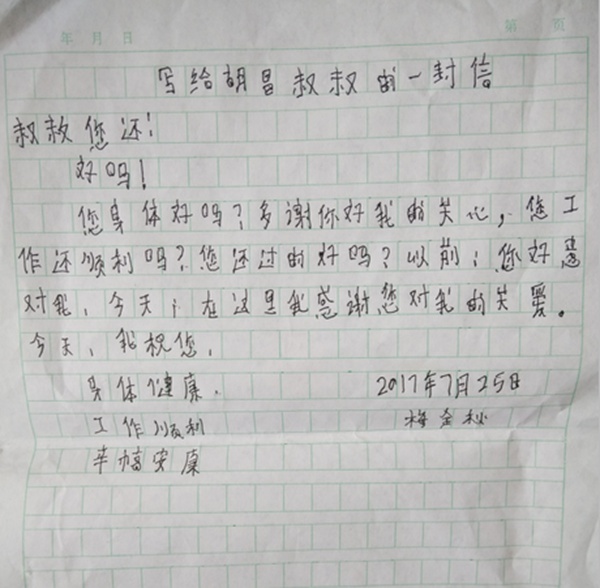 年 月 日 第 页
写给胡昌叔叔的一封信
叔叔您还!
好吗!
您身体好吗?多谢你好我的关心,您工
作还顺利吗?您还过的好吗?以前;你好意
对我,今天;在这里我感谢您对我的关爱。
今天,我祝您,
身体健康. 2017年7月25日
工作顺利 梅金秋
幸福安康